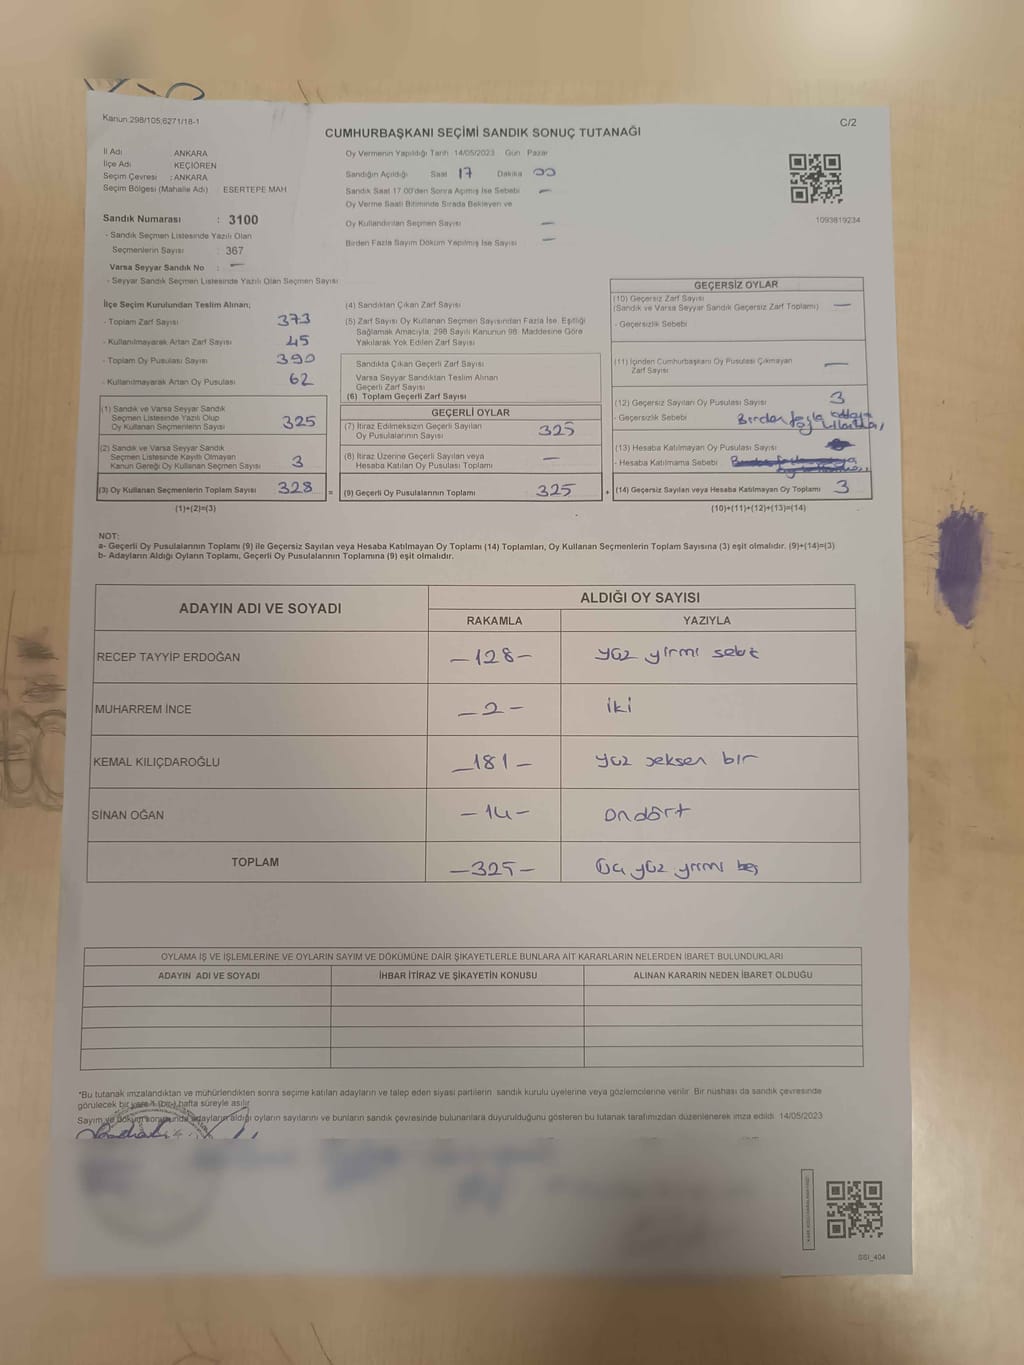 Kanun 298/105,6271/18-1
C/2
CUMHURBAŞKANI SEÇİMİ SANDIK SONUÇ TUTANAĞI
İl Adı : ANKARA
İlçe Adı : KEÇİÖREN
Seçim Çevresi : ANKARA
Seçim Bölgesi (Mahalle Adı) : ESERTEPE MAH
Sandık Numarası : 3100
- Sandık Seçmen Listesinde Yazılı Olan
Seçmenlerin Sayısı : 367
Varsa Seyyar Sandık No : —
- Seyyar Sandık Seçmen Listesinde Yazılı Olan Seçmen Sayısı
Oy Vermenin Yapıldığı Tarih 14/05/2023 Gün Pazar
Sandığın Açıldığı Saat 17 Dakika 00
Sandık Saat 17.00'den Sonra Açılmış İse Sebebi —
Oy Verme Saati Bitiminde Sırada Bekleyen ve
Oy Kullandırılan Seçmen Sayısı —
Birden Fazla Sayım Döküm Yapılmış İse Sayısı —
1093819234
İlçe Seçim Kurulundan Teslim Alınan;
- Toplam Zarf Sayısı 373
- Kullanılmayarak Artan Zarf Sayısı 45
- Toplam Oy Pusulası Sayısı 390
- Kullanılmayarak Artan Oy Pusulası 62
(1) Sandık ve Varsa Seyyar Sandık
Seçmen Listesinde Yazılı Olup
Oy Kullanan Seçmenlerin Sayısı 325
(2) Sandık ve Varsa Seyyar Sandık
Seçmen Listesinde Kayıtlı Olmayan
Kanun Gereği Oy Kullanan Seçmen Sayısı 3
(3) Oy Kullanan Seçmenlerin Toplam Sayısı 328 =
(1)+(2)=(3)
(4) Sandıktan Çıkan Zarf Sayısı
(5) Zarf Sayısı Oy Kullanan Seçmen Sayısından Fazla İse, Eşitliği
Sağlamak Amacıyla, 298 Sayılı Kanunun 98. Maddesine Göre
Yakılarak Yok Edilen Zarf Sayısı
Sandıkta Çıkan Geçerli Zarf Sayısı
Varsa Seyyar Sandıktan Teslim Alınan
Geçerli Zarf Sayısı
(6) Toplam Geçerli Zarf Sayısı
GEÇERLİ OYLAR
(7) İtiraz Edilmeksizin Geçerli Sayılan
Oy Pusulalarının Sayısı 325
(8) İtiraz Üzerine Geçerli Sayılan veya
Hesaba Katılan Oy Pusulası Toplamı —
(9) Geçerli Oy Pusulalarının Toplamı 325 +
GEÇERSİZ OYLAR
(10) Geçersiz Zarf Sayısı
(Sandık ve Varsa Seyyar Sandık Geçersiz Zarf Toplamı) —
- Geçersizlik Sebebi
(11) İçinden Cumhurbaşkanı Oy Pusulası Çıkmayan
Zarf Sayısı —
(12) Geçersiz Sayılan Oy Pusulası Sayısı 3
- Geçersizlik Sebebi Birden fazla
(13) Hesaba Katılmayan Oy Pusulası Sayısı
- Hesaba Katılmama Sebebi
(14) Geçersiz Sayılan veya Hesaba Katılmayan Oy Toplamı 3
(10)+(11)+(12)+(13)=(14)
NOT:
a- Geçerli Oy Pusulalarının Toplamı (9) ile Geçersiz Sayılan veya Hesaba Katılmayan Oy Toplamı (14) Toplamları, Oy Kullanan Seçmenlerin Toplam Sayısına (3) eşit olmalıdır. (9)+(14)=(3)
b- Adayların Aldığı Oyların Toplamı, Geçerli Oy Pusulalarının Toplamına (9) eşit olmalıdır.
ADAYIN ADI VE SOYADI
ALDIĞI OY SAYISI
RAKAMLA YAZIYLA
RECEP TAYYİP ERDOĞAN —128— yüz yirmi sekiz
MUHARREM İNCE —2— iki
KEMAL KILIÇDAROĞLU —181— yüz seksen bir
SİNAN OĞAN —14— ondört
TOPLAM —325— Üç yüz yirmi beş
OYLAMA İŞ VE İŞLEMLERİNE VE OYLARIN SAYIM VE DÖKÜMÜNE DAİR ŞİKAYETLERLE BUNLARA AİT KARARLARIN NELERDEN İBARET BULUNDUKLARI
ADAYIN ADI VE SOYADI İHBAR İTİRAZ VE ŞİKAYETİN KONUSU ALINAN KARARIN NEDEN İBARET OLDUĞU
*Bu tutanak imzalandıktan ve mühürlendikten sonra seçime katılan adayların ve talep eden siyasi partilerin sandık kurulu üyelerine veya gözlemcilerine verilir. Bir nüshası da sandık çevresinde
görülecek bir yere 1 (bir) hafta süreyle asılır.
Sayım ve döküm sonucunda adayların aldığı oyların sayılarını ve bunların sandık çevresinde bulunanlara duyurulduğunu gösteren bu tutanak tarafımızdan düzenlenerek imza edildi. 14/05/2023
SSI_404